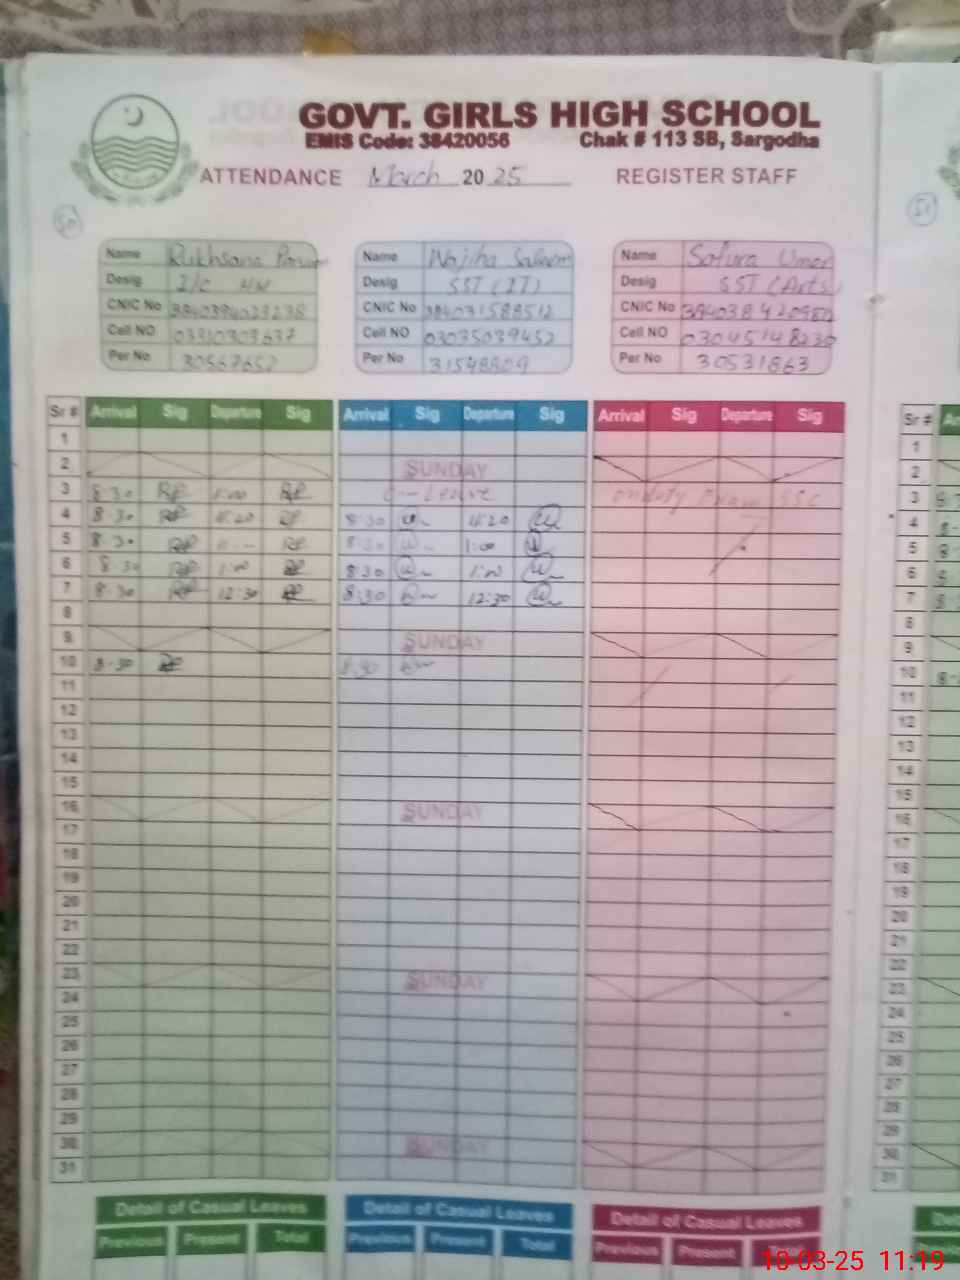 GOVT. GIRLS HIGH SCHOOL
EMIS Code: 38420056 Chak # 113 SB, Sargodha
ATTENDANCE March 2025 REGISTER STAFF
50 51
Name Rukhsana Name Wajiha Saleem Name Safura Umer
Desig I/C HM Desig SST (IT) Desig SST (Arts)
CNIC No CNIC No CNIC No
Cell NO Cell NO 03035039452 Cell NO 03045148230
Per No 30567652 Per No 31548809 Per No 30531863
Sr # Arrival Sig Departure Sig Arrival Sig Departure Sig Arrival Sig Departure Sig Sr #
1 1
2 SUNDAY 2
3 8:30 RP 1:00 RP C-Leave on duty Exam SSC 3
4 8:30 RP 11:20 RP 8:30 11:20 4
5 8:30 RP RP 8:30 1:00 5
6 8:30 RP 1:00 RP 8:30 1:00 6
7 8:30 RP 12:30 RP 8:30 12:30 7
8 8
9 SUNDAY 9
10 8:30 RP 8:30 10
11 11
12 12
13 13
14 14
15 15
16 SUNDAY 16
17 17
18 18
19 19
20 20
21 21
22 22
23 SUNDAY 23
24 24
25 25
26 26
27 27
28 28
29 29
30 SUNDAY 30
31 31
Detail of Casual Leaves Detail of Casual Leaves Detail of Casual Leaves
Previous Present Total Previous Present Total Previous Present
10-03-25 11:19